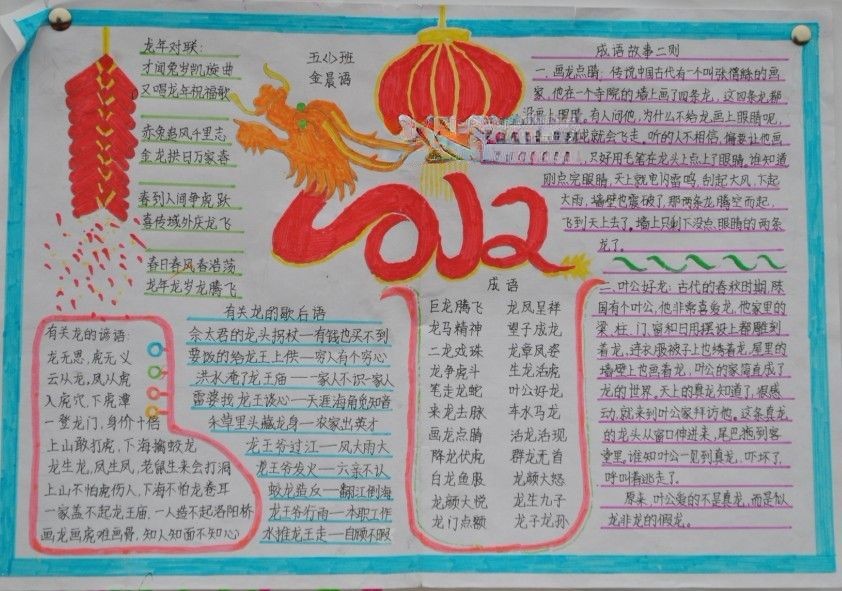 龙年对联:
才闻兔岁凯旋曲
又唱龙年祝福歌
赤兔追风千里志
金龙拱日万家春
春到人间争虎跃
喜传域外庆龙飞
春日春风春浩荡
龙年龙岁龙腾飞
五(1)班
金晨语
2012
成语故事二则
一.画龙点睛:传说中国古代有一个叫张僧繇的画
家,他在一个寺院的墙上画了四条龙,这四条龙都
有人问他,为什么不给龙画上眼睛呢,
就会飞走。听的人不相信,偏要让他画
只好用毛笔在龙头上点上了眼睛。谁知道
刚点完眼睛,天上就电闪雷鸣,刮起大风,下起
大雨,墙壁也震破了,那两条龙腾空而起,
飞到天上去了。墙上只剩下没点眼睛的两条
龙了。
二.叶公好龙:古代的春秋时期,陈
国有个叶公,他非常喜爱龙,他家里的
梁、柱、门、窗和日用摆设上都雕刻
着龙,连衣服被子上也绣着龙,屋里的
墙壁上也画着龙,叶公的家简直成了
龙的世界。天上的真龙知道了,很感
动,就来到叶公家拜访他。这条真龙
的龙头从窗口伸进来,尾巴拖到客
堂里。谁知叶公一见到真龙,吓坏了,
呼叫着逃走了。
原来,叶公爱的不是真龙,而是似
龙非龙的假龙。
有关龙的歇后语
佘太君的龙头拐杖——有钱也买不到
要饭的给龙王上供——穷人有个穷心
洪水淹了龙王庙——一家人不识一家人
霄婆找龙王谈心——天涯海角觅知音
朱草里头藏龙身——农家出英才
龙王爷过江——风大雨大
龙王爷发火——六亲不认
蛟龙造反——翻江倒海
龙王爷行雨——本职工作
水推龙王走——自顾不暇
有关龙的谚语:
龙无恩,虎无义
云从龙,风从虎
入虎穴,下龙潭
一登龙门,身价十倍
上山敢打虎,下海擒蛟龙
龙生龙,凤生凤,老鼠生来会打洞
上山不怕虎伤人,下海不怕龙卷耳
一家盖不起龙王庙,一人造不起洛阳桥
画龙画虎难画骨,知人知面不知心
成语
巨龙腾飞 龙凤呈祥
龙马精神 望子成龙
二龙戏珠 龙章凤姿
龙争虎斗 生龙活虎
笔走龙蛇 叶公好龙
来龙去脉 车水马龙
画龙点睛 活龙活现
降龙伏虎 群龙无首
白龙鱼服 龙颜大怒
龙颜大悦 龙生九子
龙门点额 龙子龙孙